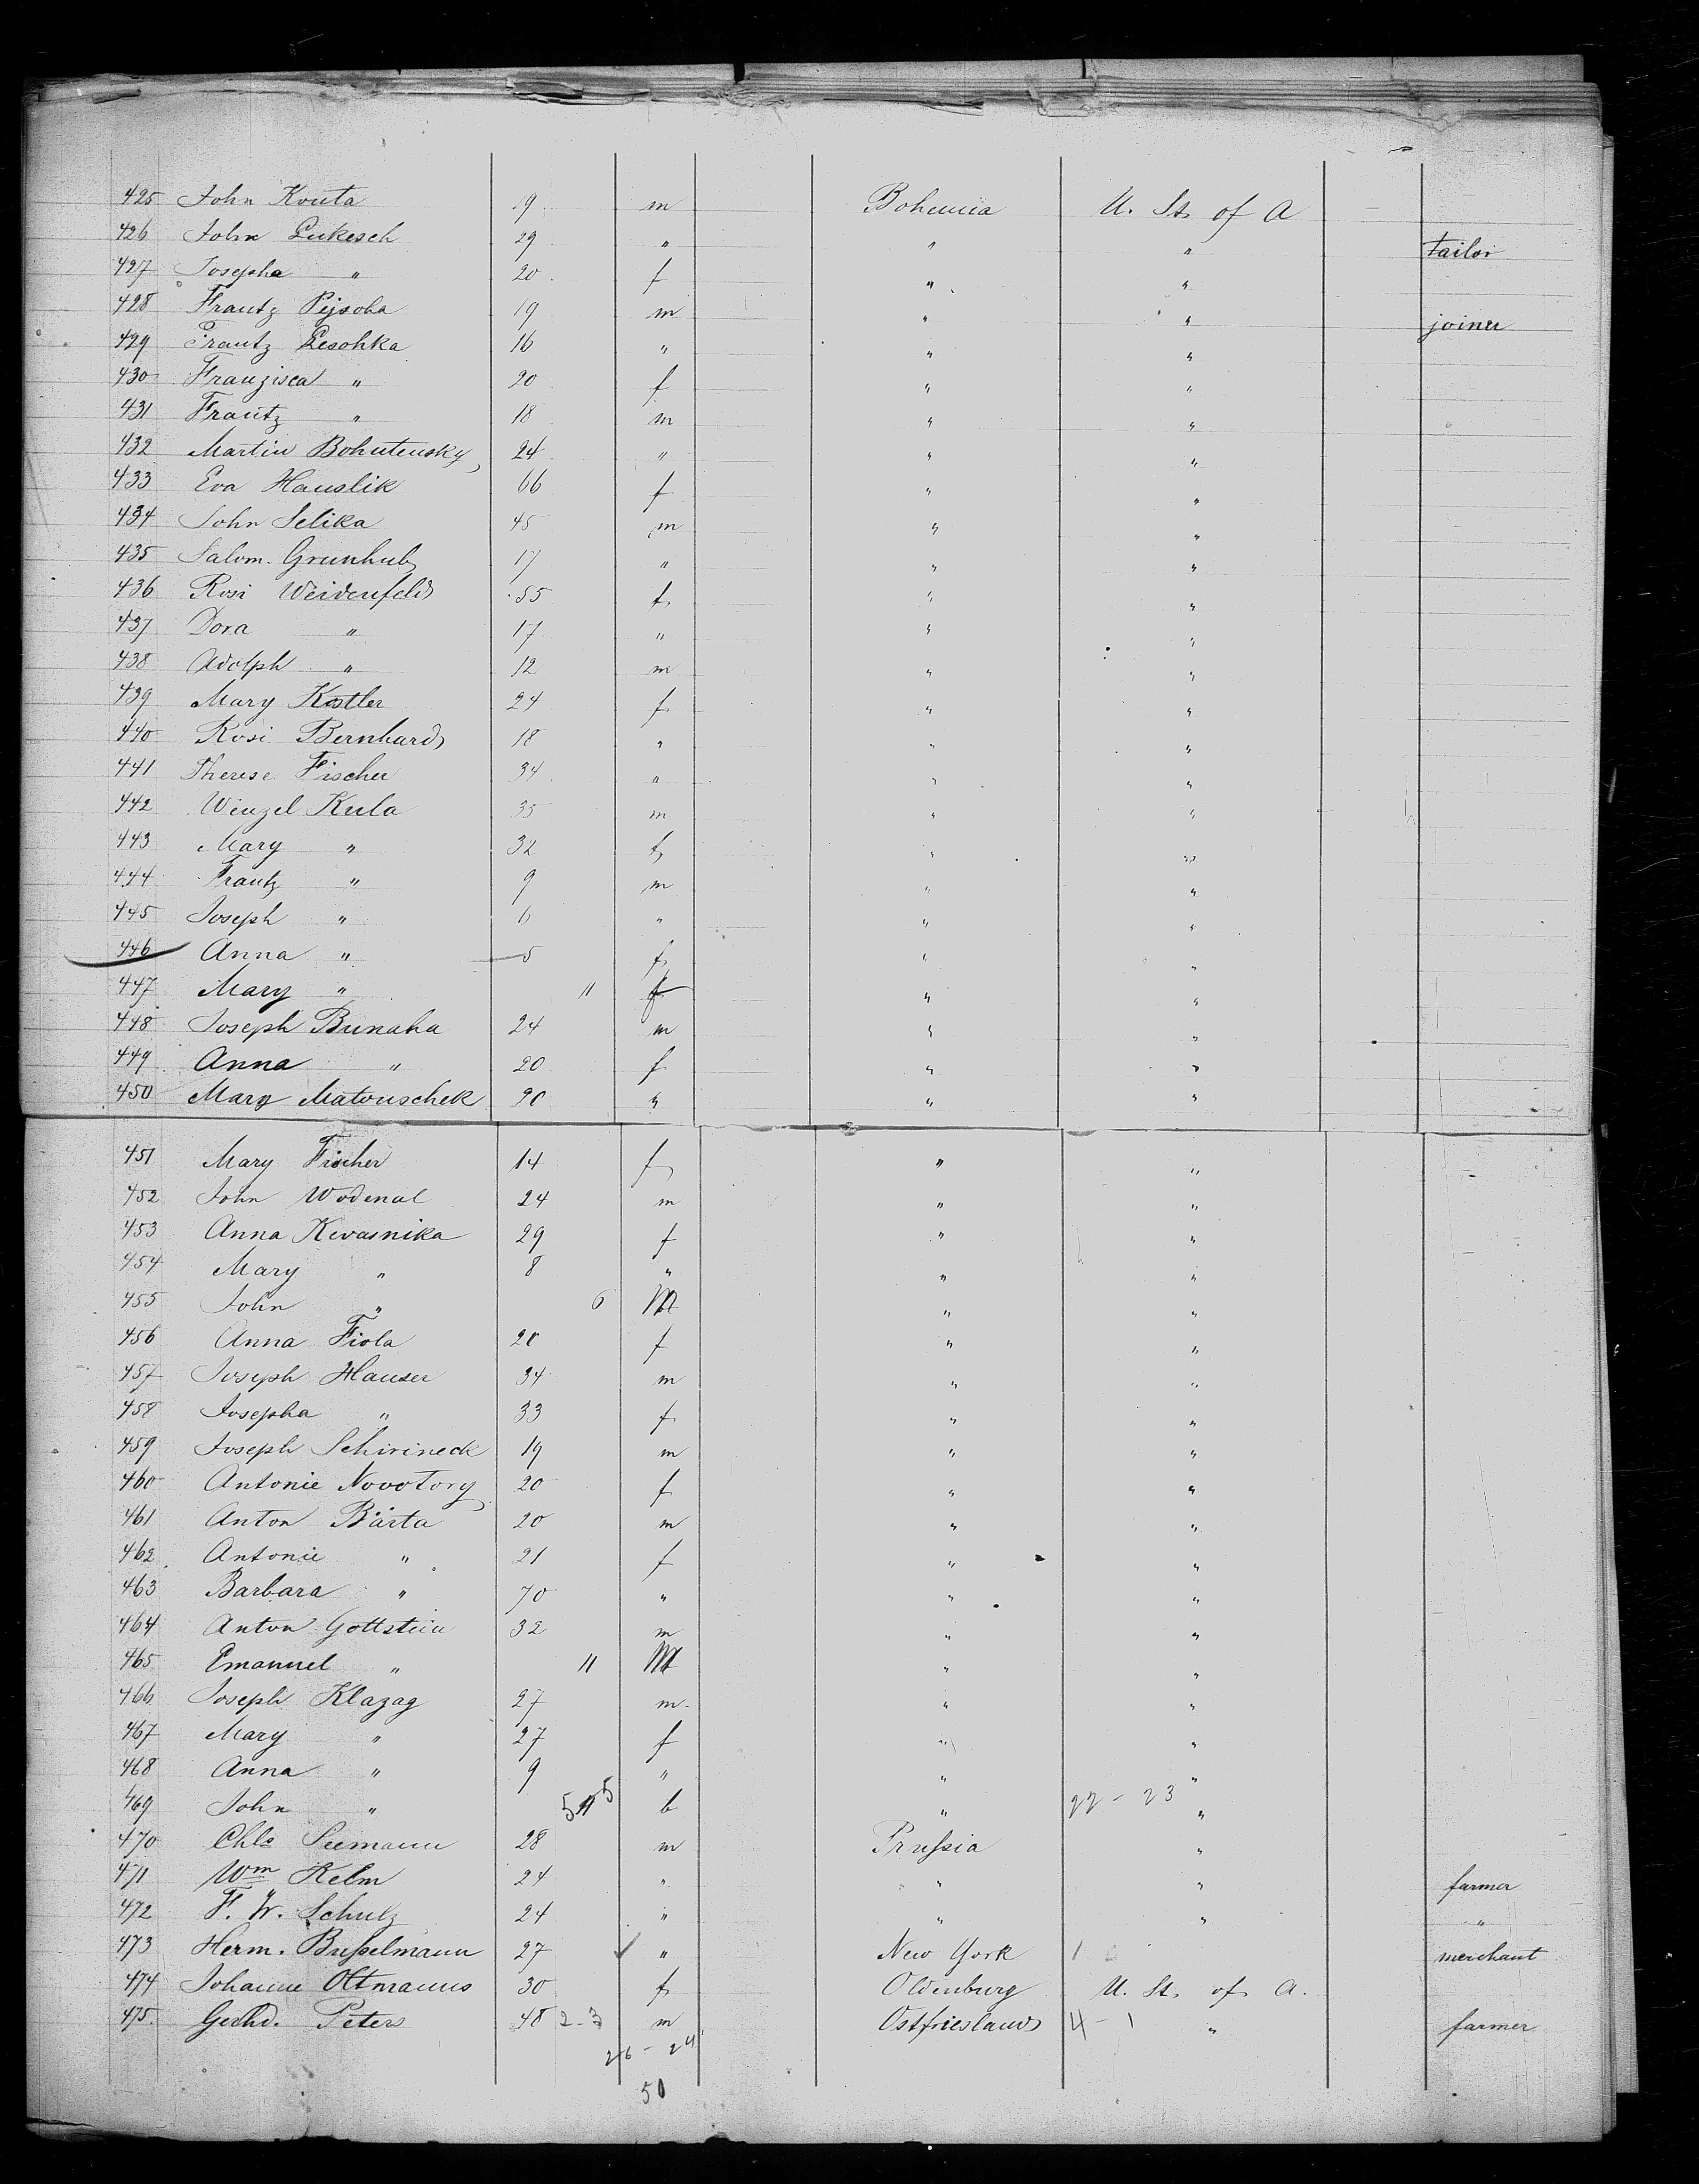 425 John Kouta 9 m Bohemia U. St. of A
426 John Lukesch 29 " " " tailor
427 Josepha " 20 f " "
428 Frantz Pejsoha 19 m " " joiner
429 Frantz Lesohka 16 " " "
430 Franzisca " 20 f " "
431 Frantz " 18 m " "
432 Martin Bohutensky 24 " " "
433 Eva Hauslik 66 f " "
434 John Selika 45 m " "
435 Salom. Grunhub 17 " " "
436 Rosi Weidenfeld 55 f " "
437 Dora " 17 " " "
438 Adolph " 12 m " "
439 Mary Kostler 24 f " "
440 Rosi Bernhard 18 " " "
441 Therese Fischer 34 " " "
442 Wenzel Kula 35 m " "
443 Mary " 32 f " "
444 Frantz " 9 m " "
445 Joseph " 6 " " "
446 Anna " 5 f " "
447 Mary " 11 f " "
448 Joseph Bunaha 24 m " "
449 Anna " 20 f " "
450 Mary Matouschek 20 " " "
451 Mary Fischer 14 f " "
452 John Wodenal 24 m " "
453 Anna Kevasnika 29 f " "
454 Mary " 8 " " "
455 John " 6 M " "
456 Anna Fiola 20 f " "
457 Joseph Hauser 34 m " "
458 Josepha " 33 f " "
459 Joseph Schirineck 19 m " "
460 Antonie Novotory 20 f " "
461 Anton Bärta 20 m " "
462 Antonie " 21 f " "
463 Barbara " 70 " " "
464 Anton Gottstein 32 m " "
465 Emanuel " 11 M " "
466 Joseph Klazag 27 m " "
467 Mary " 27 f " "
468 Anna " 9 " " "
469 John " 5 11 5 b " 22 - 23 "
470 Chls Seemann 28 m Prussia "
471 Wm Kelm 24 " " " farmer
472 F. W. Schulz 24 " " " "
473 Herm. Busselmann 27 " New York 1 merchant
474 Johanne Oltmanns 30 f Oldenburg U. St. of A.
475. Gerhd. Peters 48 2-3 m Ostfriesland 4 - 1 " farmer
26 - 24
50